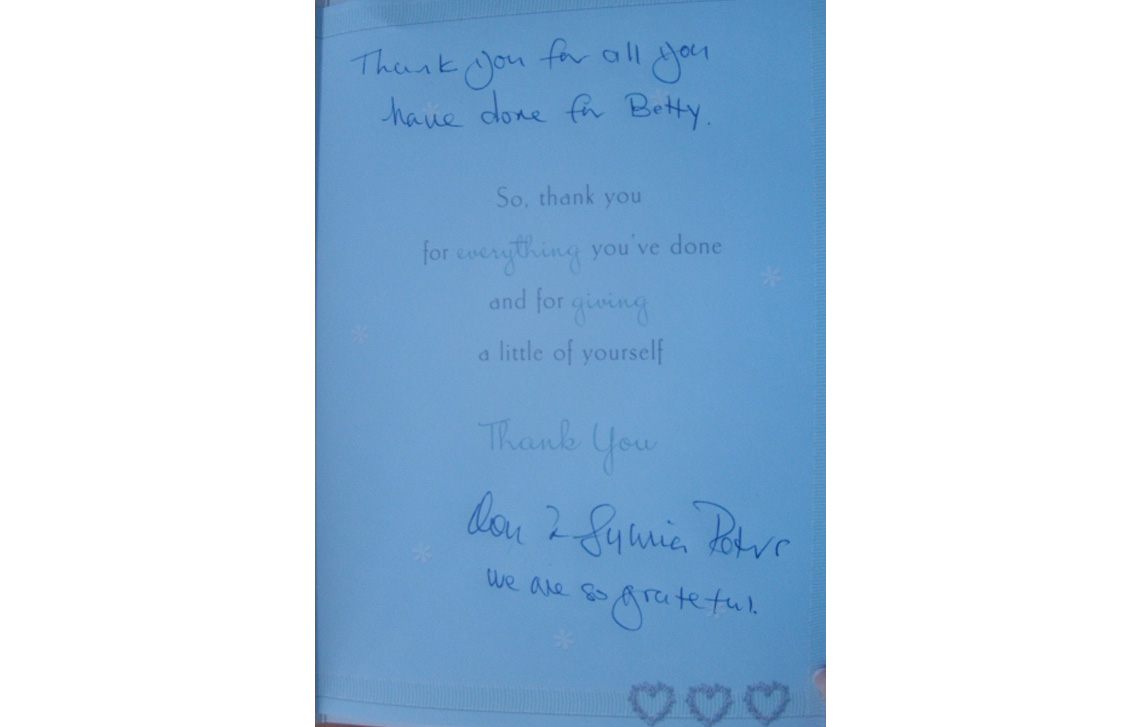 Thank you for all you
have done for Betty.
So, thank you
for everything you've done
and for giving
a little of yourself
Thank You
Don & Sylvia
we are so grateful.